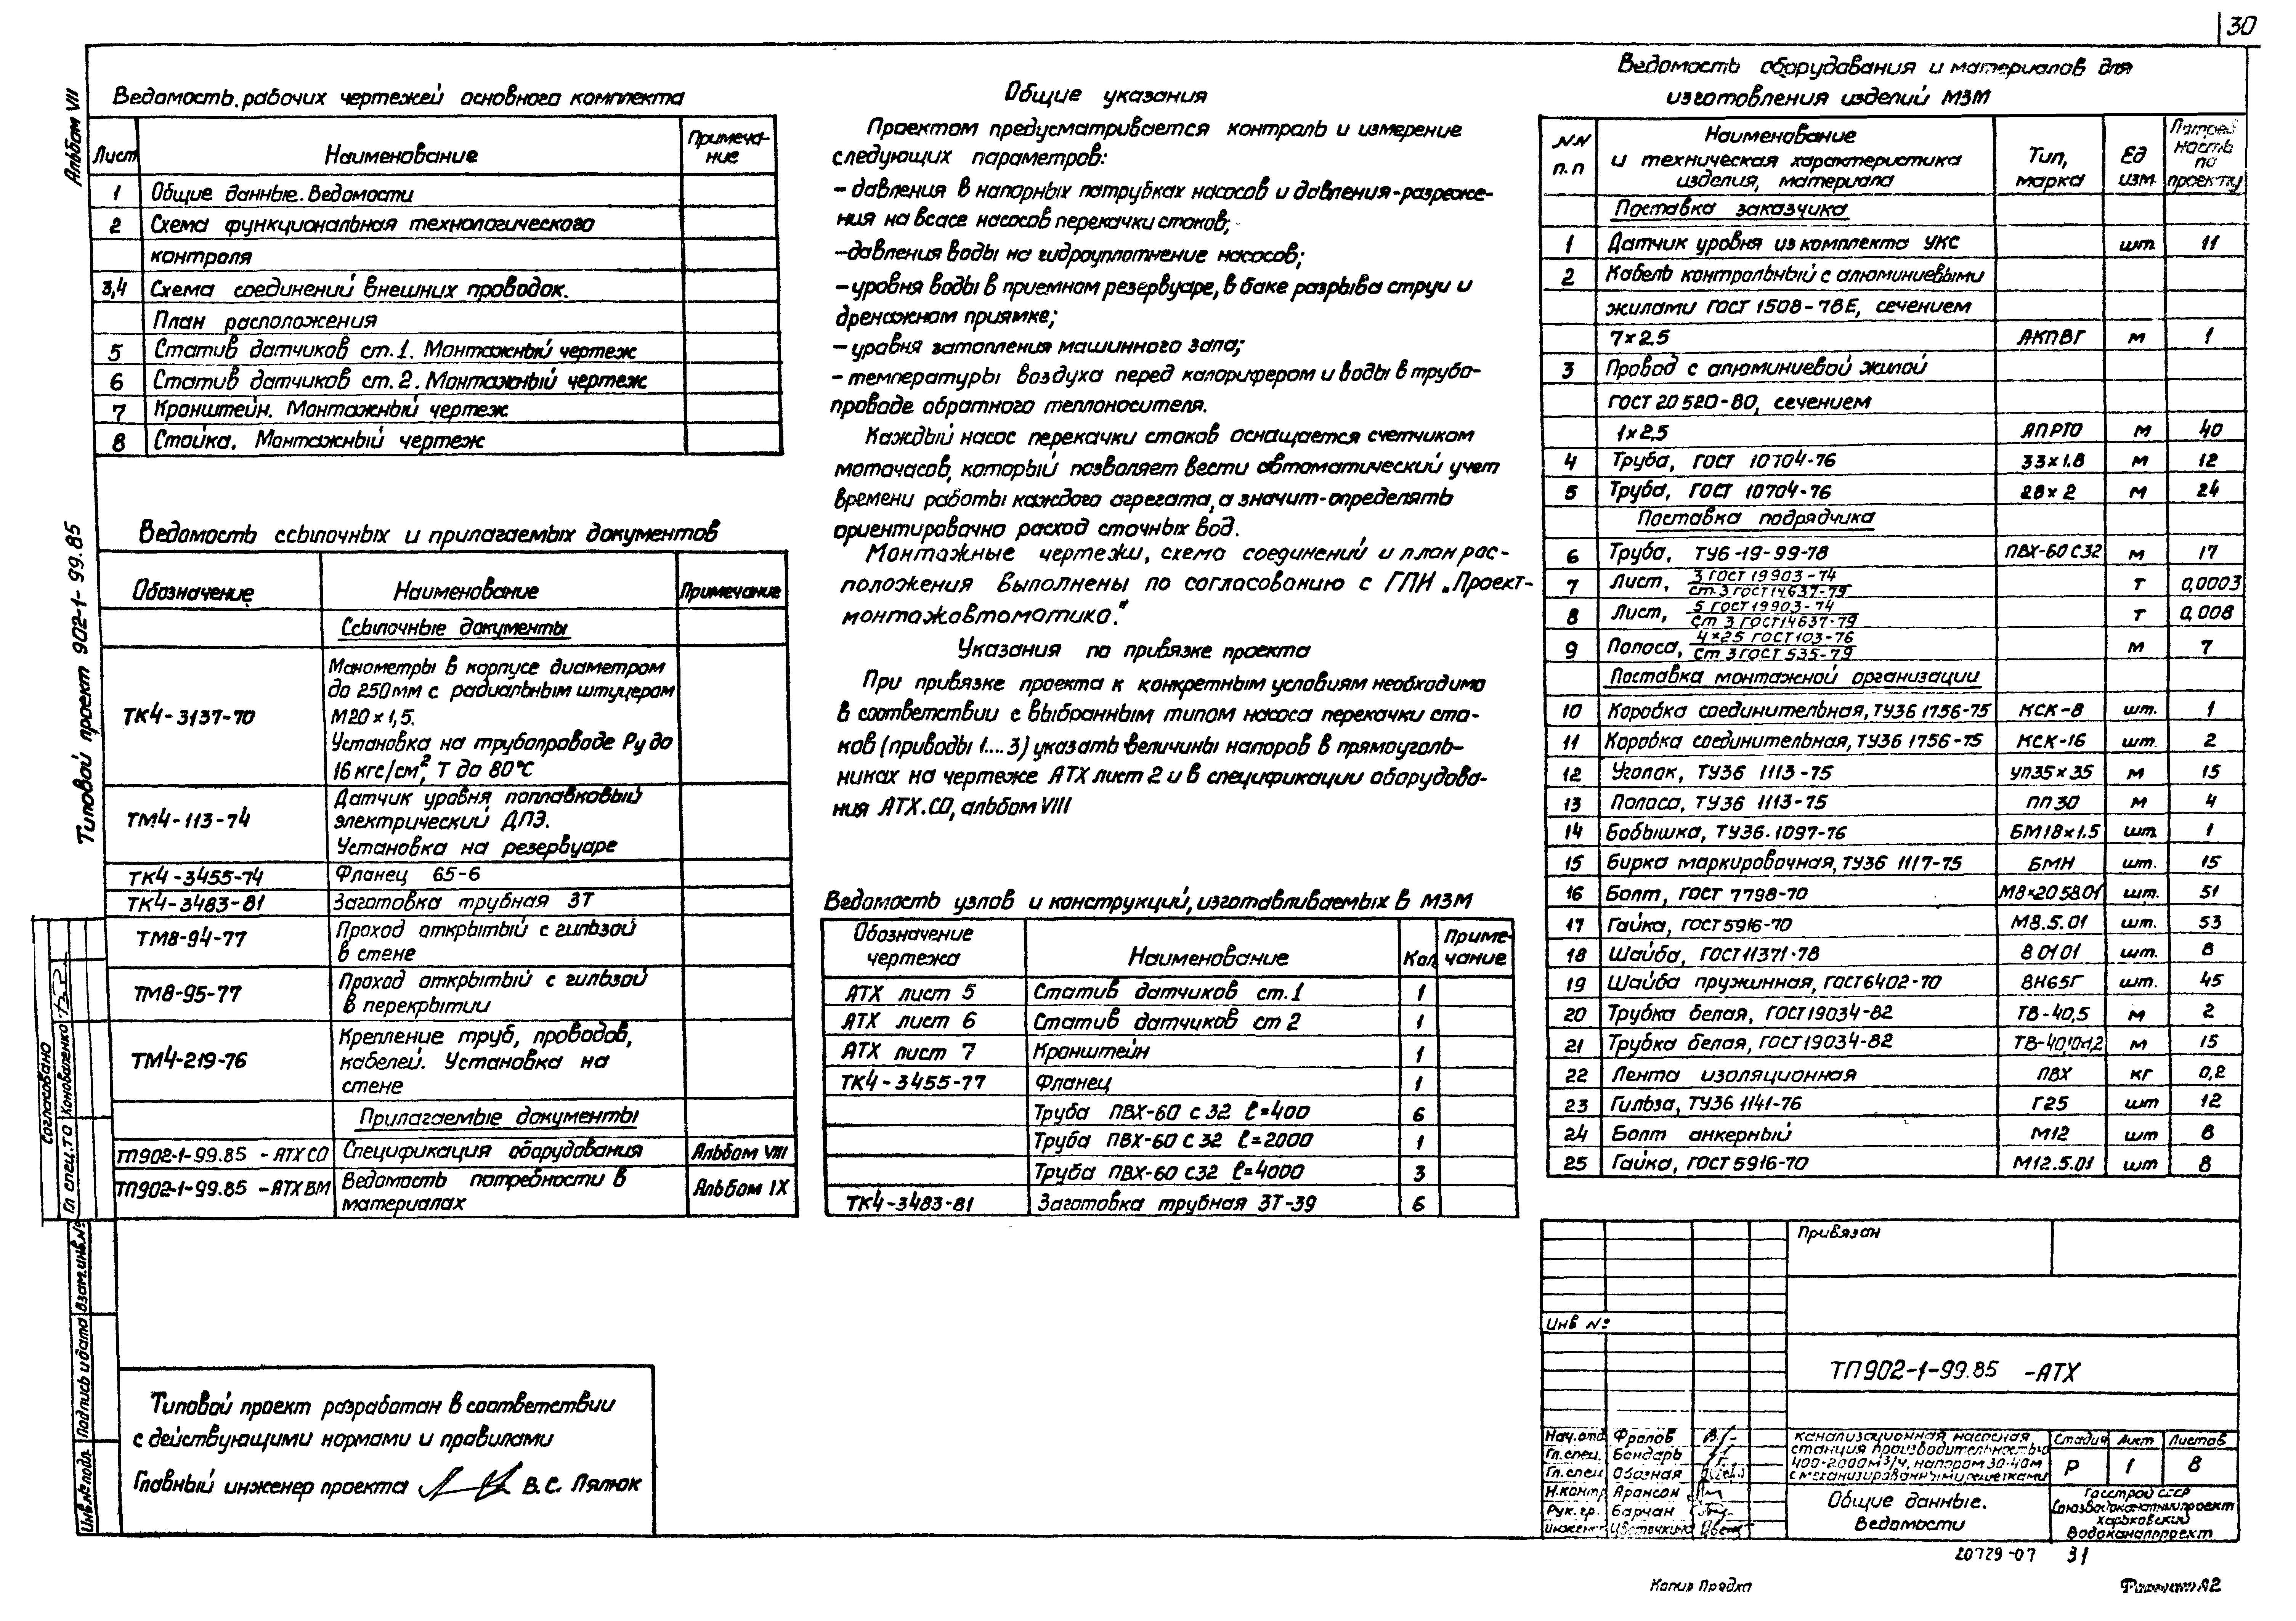 30
Альбом VII
Типовой проект 902-1-99.85
Ведомость рабочих чертежей основного комплекта
Лист Наименование Примеча-
ние
1 Общие данные. Ведомости
2 Схема функциональная технологического
контроля
3,4 Схема соединений внешних проводок.
План расположения
5 Статив датчиков ст.1. Монтажный чертеж
6 Статив датчиков ст.2. Монтажный чертеж
7 Кронштейн. Монтажный чертеж
8 Стойка. Монтажный чертеж
Ведомость ссылочных и прилагаемых документов
Обозначение Наименование Примечание
Ссылочные документы
Манометры в корпусе диаметром
до 250мм с радиальным штуцером
ТК4-3137-70 М20×1,5.
Установка на трубопроводе Ру до
16 кгс/см², Т до 80°С
Датчик уровня поплавковый
ТМ4-113-74 электрический ДПЭ.
Установка на резервуаре
ТК4-3455-74 Фланец 65-6
ТК4-3483-81 Заготовка трубная ЗТ
ТМ8-94-77 Проход открытый с гильзой
в стене
ТМ8-95-77 Проход открытый с гильзой
в перекрытии
Крепление труб, проводов,
ТМ4-219-76 кабелей. Установка на
стене
Прилагаемые документы
ТП902-1-99.85 -АТХ СО Спецификация оборудования Альбом VIII
ТП902-1-99.85 -АТХ ВМ Ведомость потребности в Альбом IX
материалах
Согласовано
Гл спец. ТО Коноваленко
Взам.инв.№
Подпись и дата
Инв.№ подл.
Типовой проект разработан в соответствии
с действующими нормами и правилами
Главный инженер проекта В.С. Пялюк
Общие указания
Проектом предусматривается контроль и измерение
следующих параметров:
- давления в напорных патрубках насосов и давления-разреже-
ния на всасе насосов перекачки стоков;
- давления воды на гидроуплотнение насосов;
- уровня воды в приемном резервуаре, в баке разрыва струи и
дренажном приямке;
- уровня затопления машинного зала;
- температуры воздуха перед калорифером и воды в трубо-
проводе обратного теплоносителя.
Каждый насос перекачки стоков оснащается счетчиком
моточасов, который позволяет вести автоматический учет
времени работы каждого агрегата, а значит-определять
ориентировочно расход сточных вод.
Монтажные чертежи, схема соединений и план рас-
положения выполнены по согласованию с ГПИ „Проект-
монтажавтоматика."
Указания по привязке проекта
При привязке проекта к конкретным условиям необходимо
в соответствии с выбранным типом насоса перекачки сто-
ков (приводы 1....3) указать величины напоров в прямоуголь-
никах на чертеже АТХ лист 2 и в спецификации оборудова-
ния АТХ.СО, альбом VIII
Ведомость узлов и конструкций, изготавливаемых в МЗМ
Обозначение
чертежа Наименование Кол Приме-
чание
АТХ лист 5 Статив датчиков ст.1 1
АТХ лист 6 Статив датчиков ст 2 1
АТХ лист 7 Кронштейн 1
ТК4-3455-77 Фланец 1
Труба ПВХ-60 с 32 ℓ=400 6
Труба ПВХ-60 С 32 ℓ=2000 1
Труба ПВХ-60 С32 ℓ=4000 3
ТК4-3483-81 Заготовка трубная ЗТ-39 6
Ведомость оборудования и материалов для
изготовления изделий МЗМ
NN
п.п Наименование
и техническая характеристика
изделия, материала Тип,
марка Ед
изм. Потреб
ность
по
проекту
Поставка заказчика
1 Датчик уровня из комплекта УКС шт. 11
2 Кабель контрольный с алюминиевыми
жилами ГОСТ 1508-78Е, сечением
7×2,5 АКПВГ м 1
3 Провод с алюминиевой жилой
ГОСТ 20520-80, сечением
1×2,5 АПРТО м 40
4 Труба, ГОСТ 10704-76 33×1.8 м 12
5 Труба, ГОСТ 10704-76 28×2 м 24
Поставка подрядчика
6 Труба, ТУ6-19-99-78 ПВХ-60 С32 м 17
7 Лист, 3 ГОСТ 19903-74
ст.3 ГОСТ 14637-79 т 0,0003
8 Лист, 5 ГОСТ 19903-74
ст 3 ГОСТ 14637-79 т 0,008
9 Полоса, 4×25 ГОСТ 103-76
Ст 3 ГОСТ 535-79 м 7
Поставка монтажной организации
10 Коробка соединительная, ТУ36 1756-75 КСК-8 шт. 1
11 Коробка соединительная, ТУ36 1756-75 КСК-16 шт. 2
12 Уголок, ТУ36 1113-75 УП35×35 м 15
13 Полоса, ТУ36 1113-75 ПП30 м 4
14 Бобышка, ТУ36.1097-76 БМ18×1.5 шт. 1
15 Бирка маркировочная, ТУ36 1117-75 БМН шт. 15
16 Болт, ГОСТ 7798-70 М8×20 58.01 шт. 51
17 Гайка, ГОСТ 5916-70 М8.5.01 шт. 53
18 Шайба, ГОСТ 11371-78 8 01 01 шт. 8
19 Шайба пружинная, ГОСТ 6402-70 8Н65Г шт. 45
20 Трубка белая, ГОСТ 19034-82 ТВ-40,5 м 2
21 Трубка белая, ГОСТ 19034-82 ТВ-40,10×1,2 м 15
22 Лента изоляционная ПВХ кг 0,2
23 Гильза, ТУ36 1141-76 Г25 шт 12
24 Болт анкерный М12 шт 8
25 Гайка, ГОСТ 5916-70 М12.5.01 шт 8
Привязан
Инв №
ТП902-1-99.85 -АТХ
Нач.отд Фролов
Гл.спец. Бондарь
Гл.спец. Обозная
Н.контр Аронсон
Рук.гр. Барчан
Инженер Цветочкина
Канализационная насосная
станция производительностью
400-2000м³/ч, напором 30-40м
с механизированными решетками
Стадия Лист Листов
Р 1 8
Общие данные.
Ведомости
Госстрой СССР
Союзводоканалпроект
Харьковский
Водоканалпроект
20729-07 31
Копир Формат А2